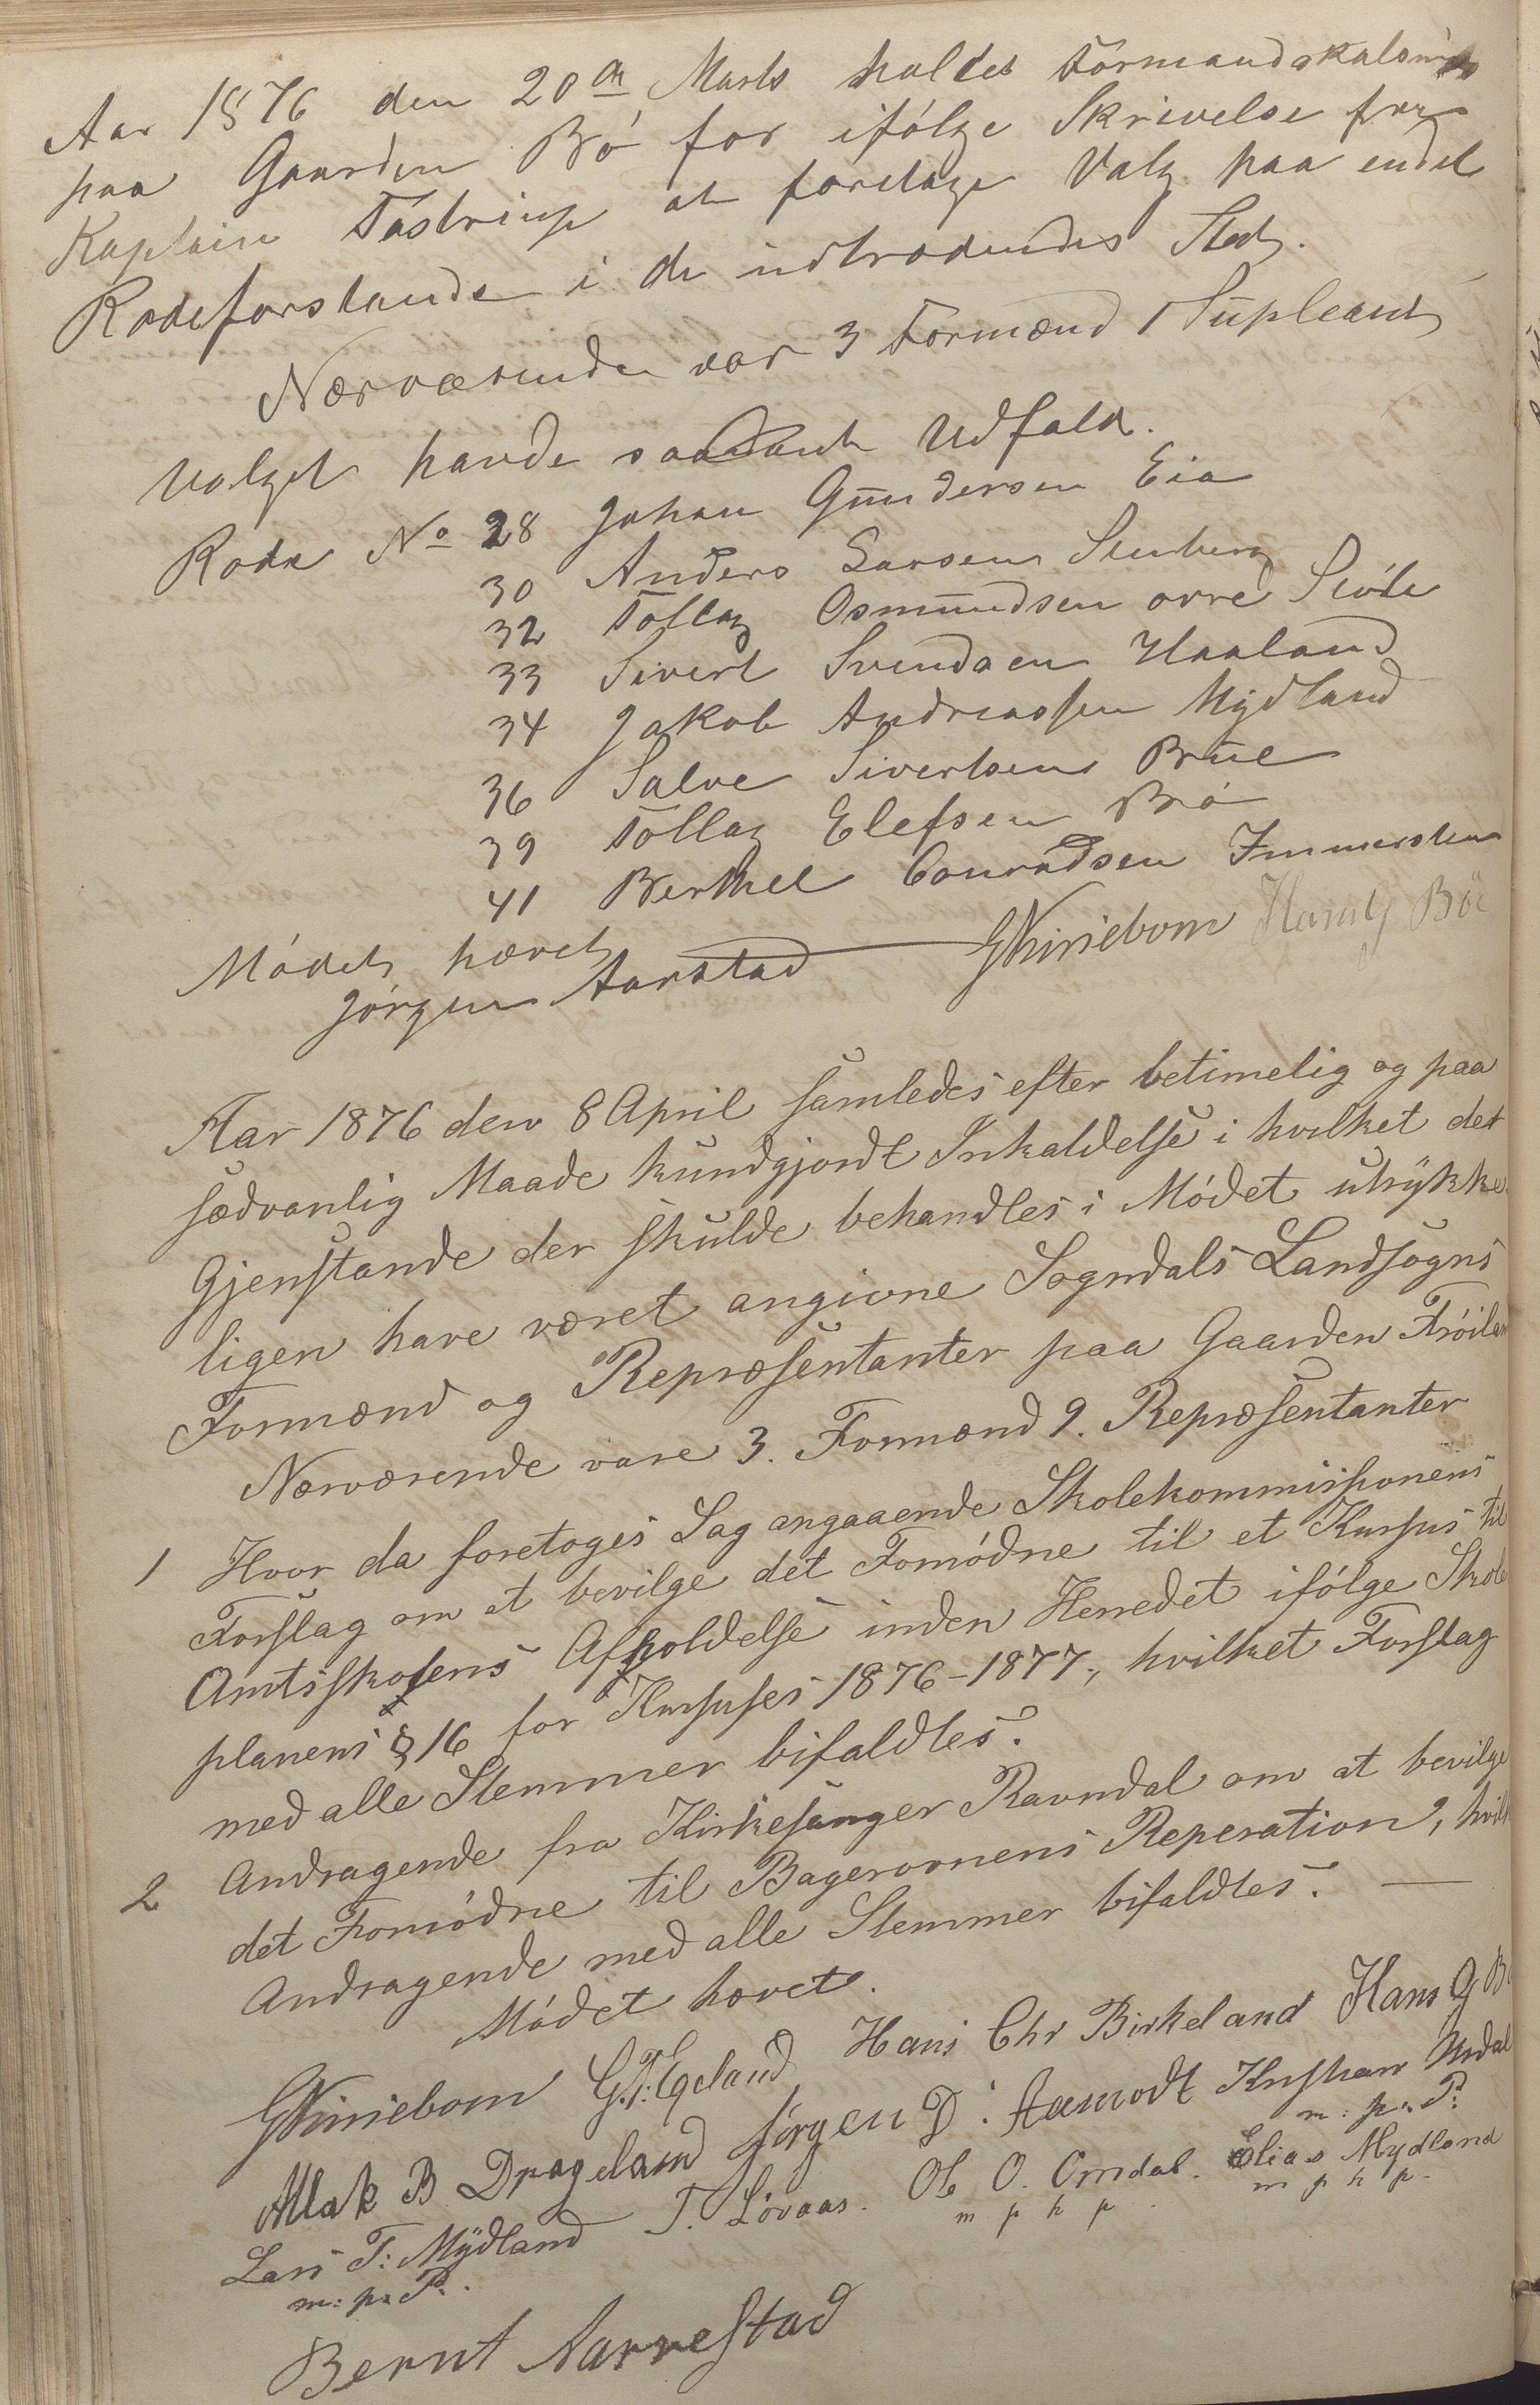 Aar 1876 den 20de Marts holdtes Formandskabsmøde
paa Gaarden Bø for ifølge Skrivelse fra
Kaptain Tostrup at foretage Valg paa endel
Rodeforstandere i de udtrædendes Sted.
Nærværende var 3 Formænd 1 Supleant
Valget havde saadant Udfald.
Rode No 28 Johan Gundersen Eia
30 Anders Larsen Stenberg
32 Tollag Osmundsen øvre Skøle
33 Sivert Svendsen Haaland
34 Jakob Andreassen Mydland
36 Salve Sivertsen Brue
39 Tollag Elefsen Bø
41 Berthel Conradsen Immersten
Mødet hævet
Jørgen Aarstad G Kirsebom Hans G Böe
Aar 1876 den 8 April samledes efter betimelig og paa
sædvanlig Maade kundgjordt Inkaldelse i hvilket det
Gjenstande der skulde behandles i Mødet utrykke
ligen have været angivne Sogndals Landsogns
Formænd og Repræsentanter paa Gaarden Frøilan
Nærværende vare 3. Formænd 9. Repræsentanter
1 Hvor da foretoges Sag angaaende Skolekommissionens
Forslag om at bevilge det Fornødne til et Kursus til
Amtsskolens Afholdelse inden Herredet ifølge Skole
planens § 16 for Kursuses 1876-1877, hvilket Forslag
med alle Stemmer bifaldtes.
2 Andragende fra Kirkesanger Ravndal om at bevilge
det Fornødne til Bagerovnens Reperation, hvilk
Andragende med alle Stemmer bifaldtes. —
Mødet hævet.
G Kirsebom G. T. Egeland Hans Chr Birkeland Hans G Bö
Atlak B Drageland Jørgen D. Aamodt Kristian Urdal
m: p: P:
Lars T: Mydland T. Lövaas. Ole O. Omdal. Elias Mydland
m: p: P. m p h p m p h p
Bernt Aarrestad